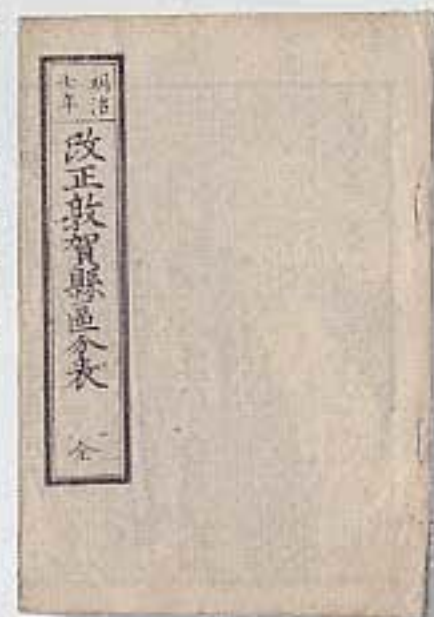 明治
七年
改正敦賀縣區分表
全